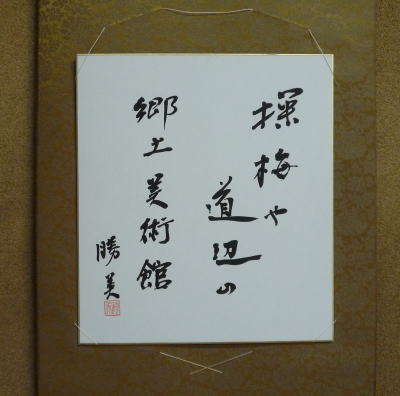 探梅や
道辺の
郷土美術館
勝美